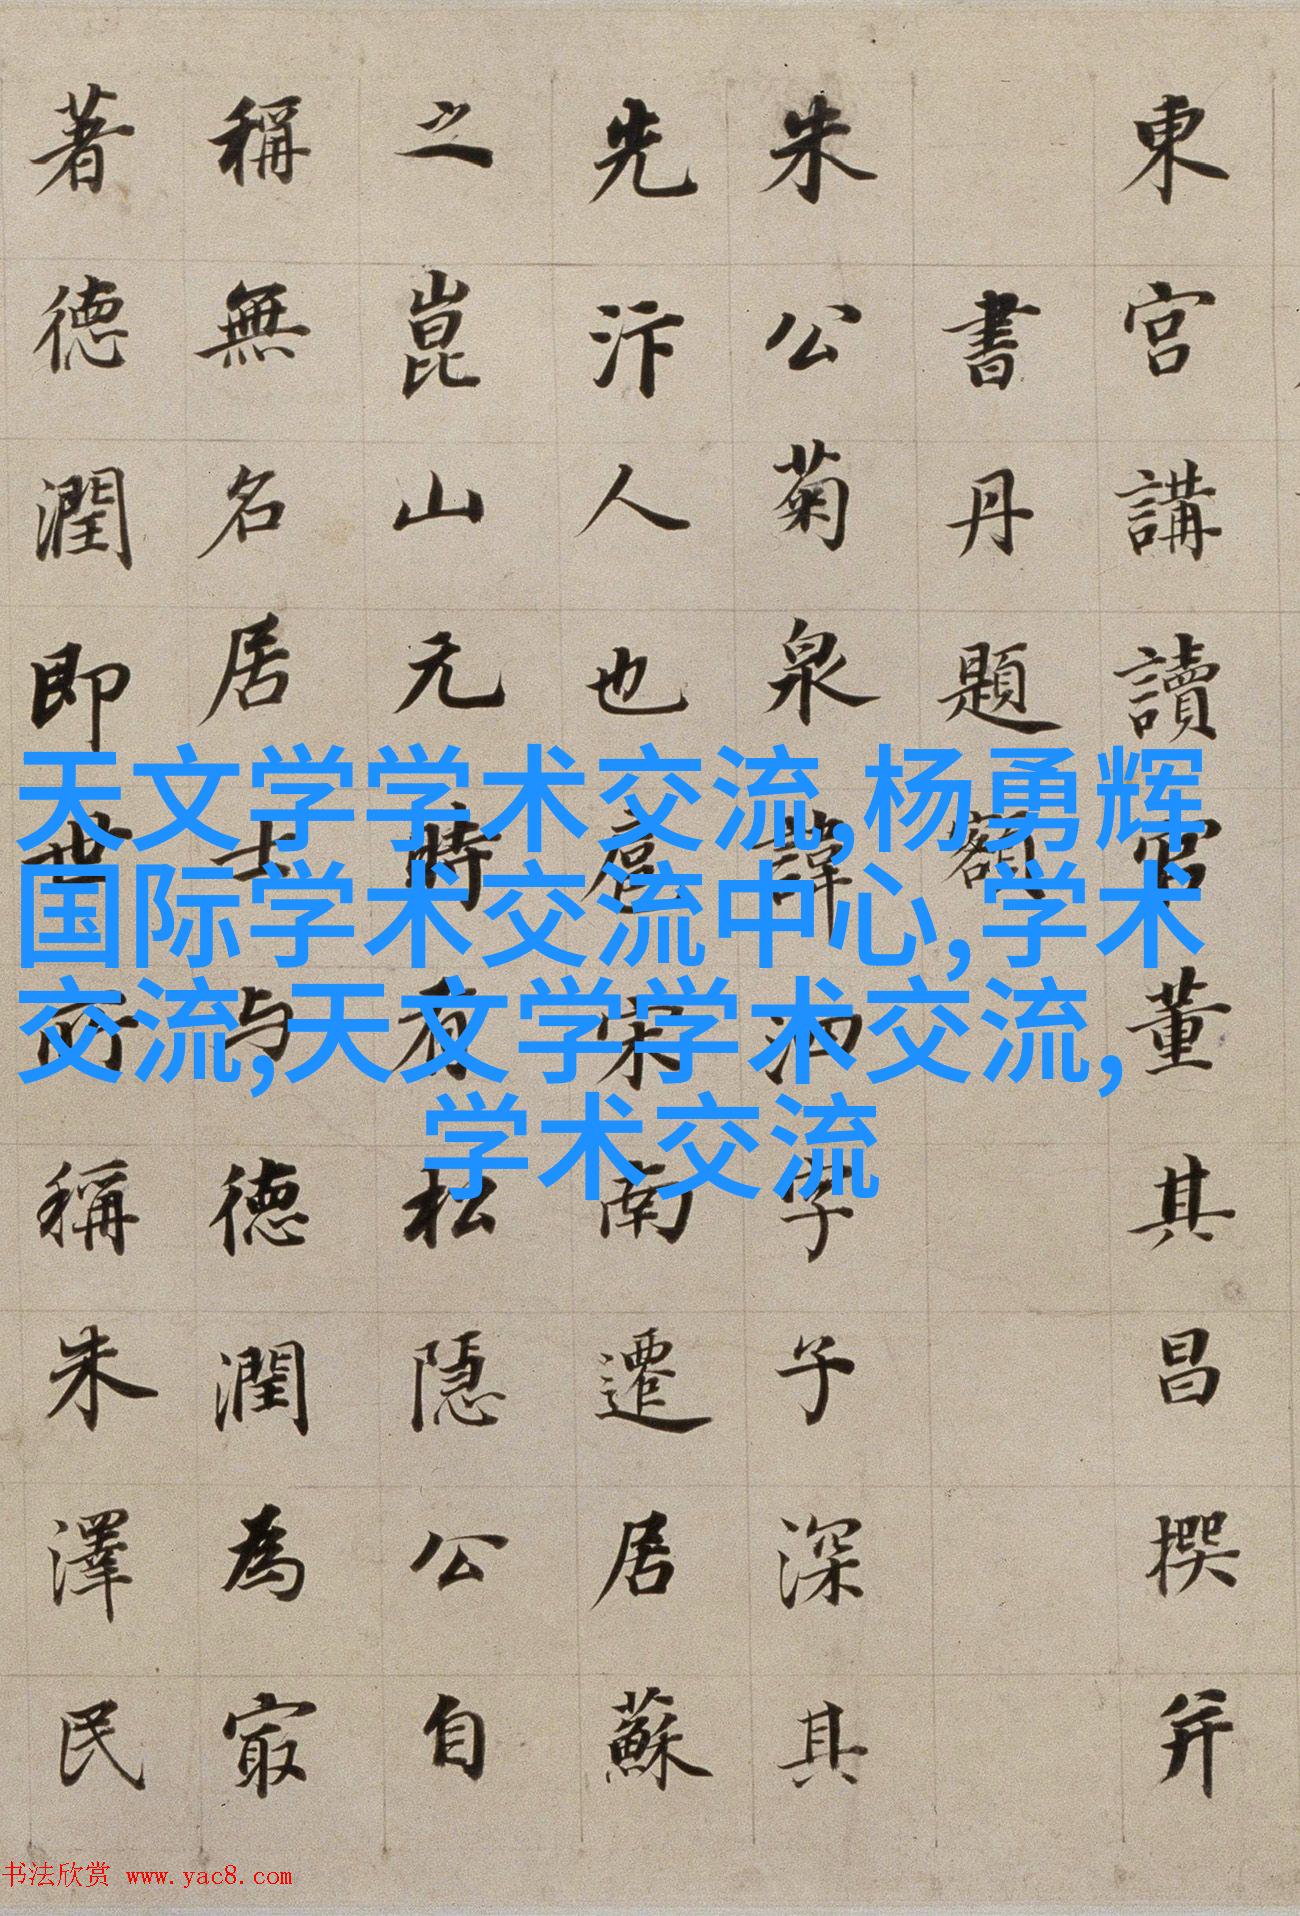 東宮講讀官董其昌撰并
書丹題額
朱公菊泉諱泗字子深其
先汴人也扈宋南遷居蘇
之崑山元時有松隱公自
稱無名居士与德潤為寂
著德潤即世所稱朱澤民
天文学学术交流,杨勇辉
国际学术交流中心,学术
交流,天文学学术交流,
学术交流
书法欣赏 www.yac8.com